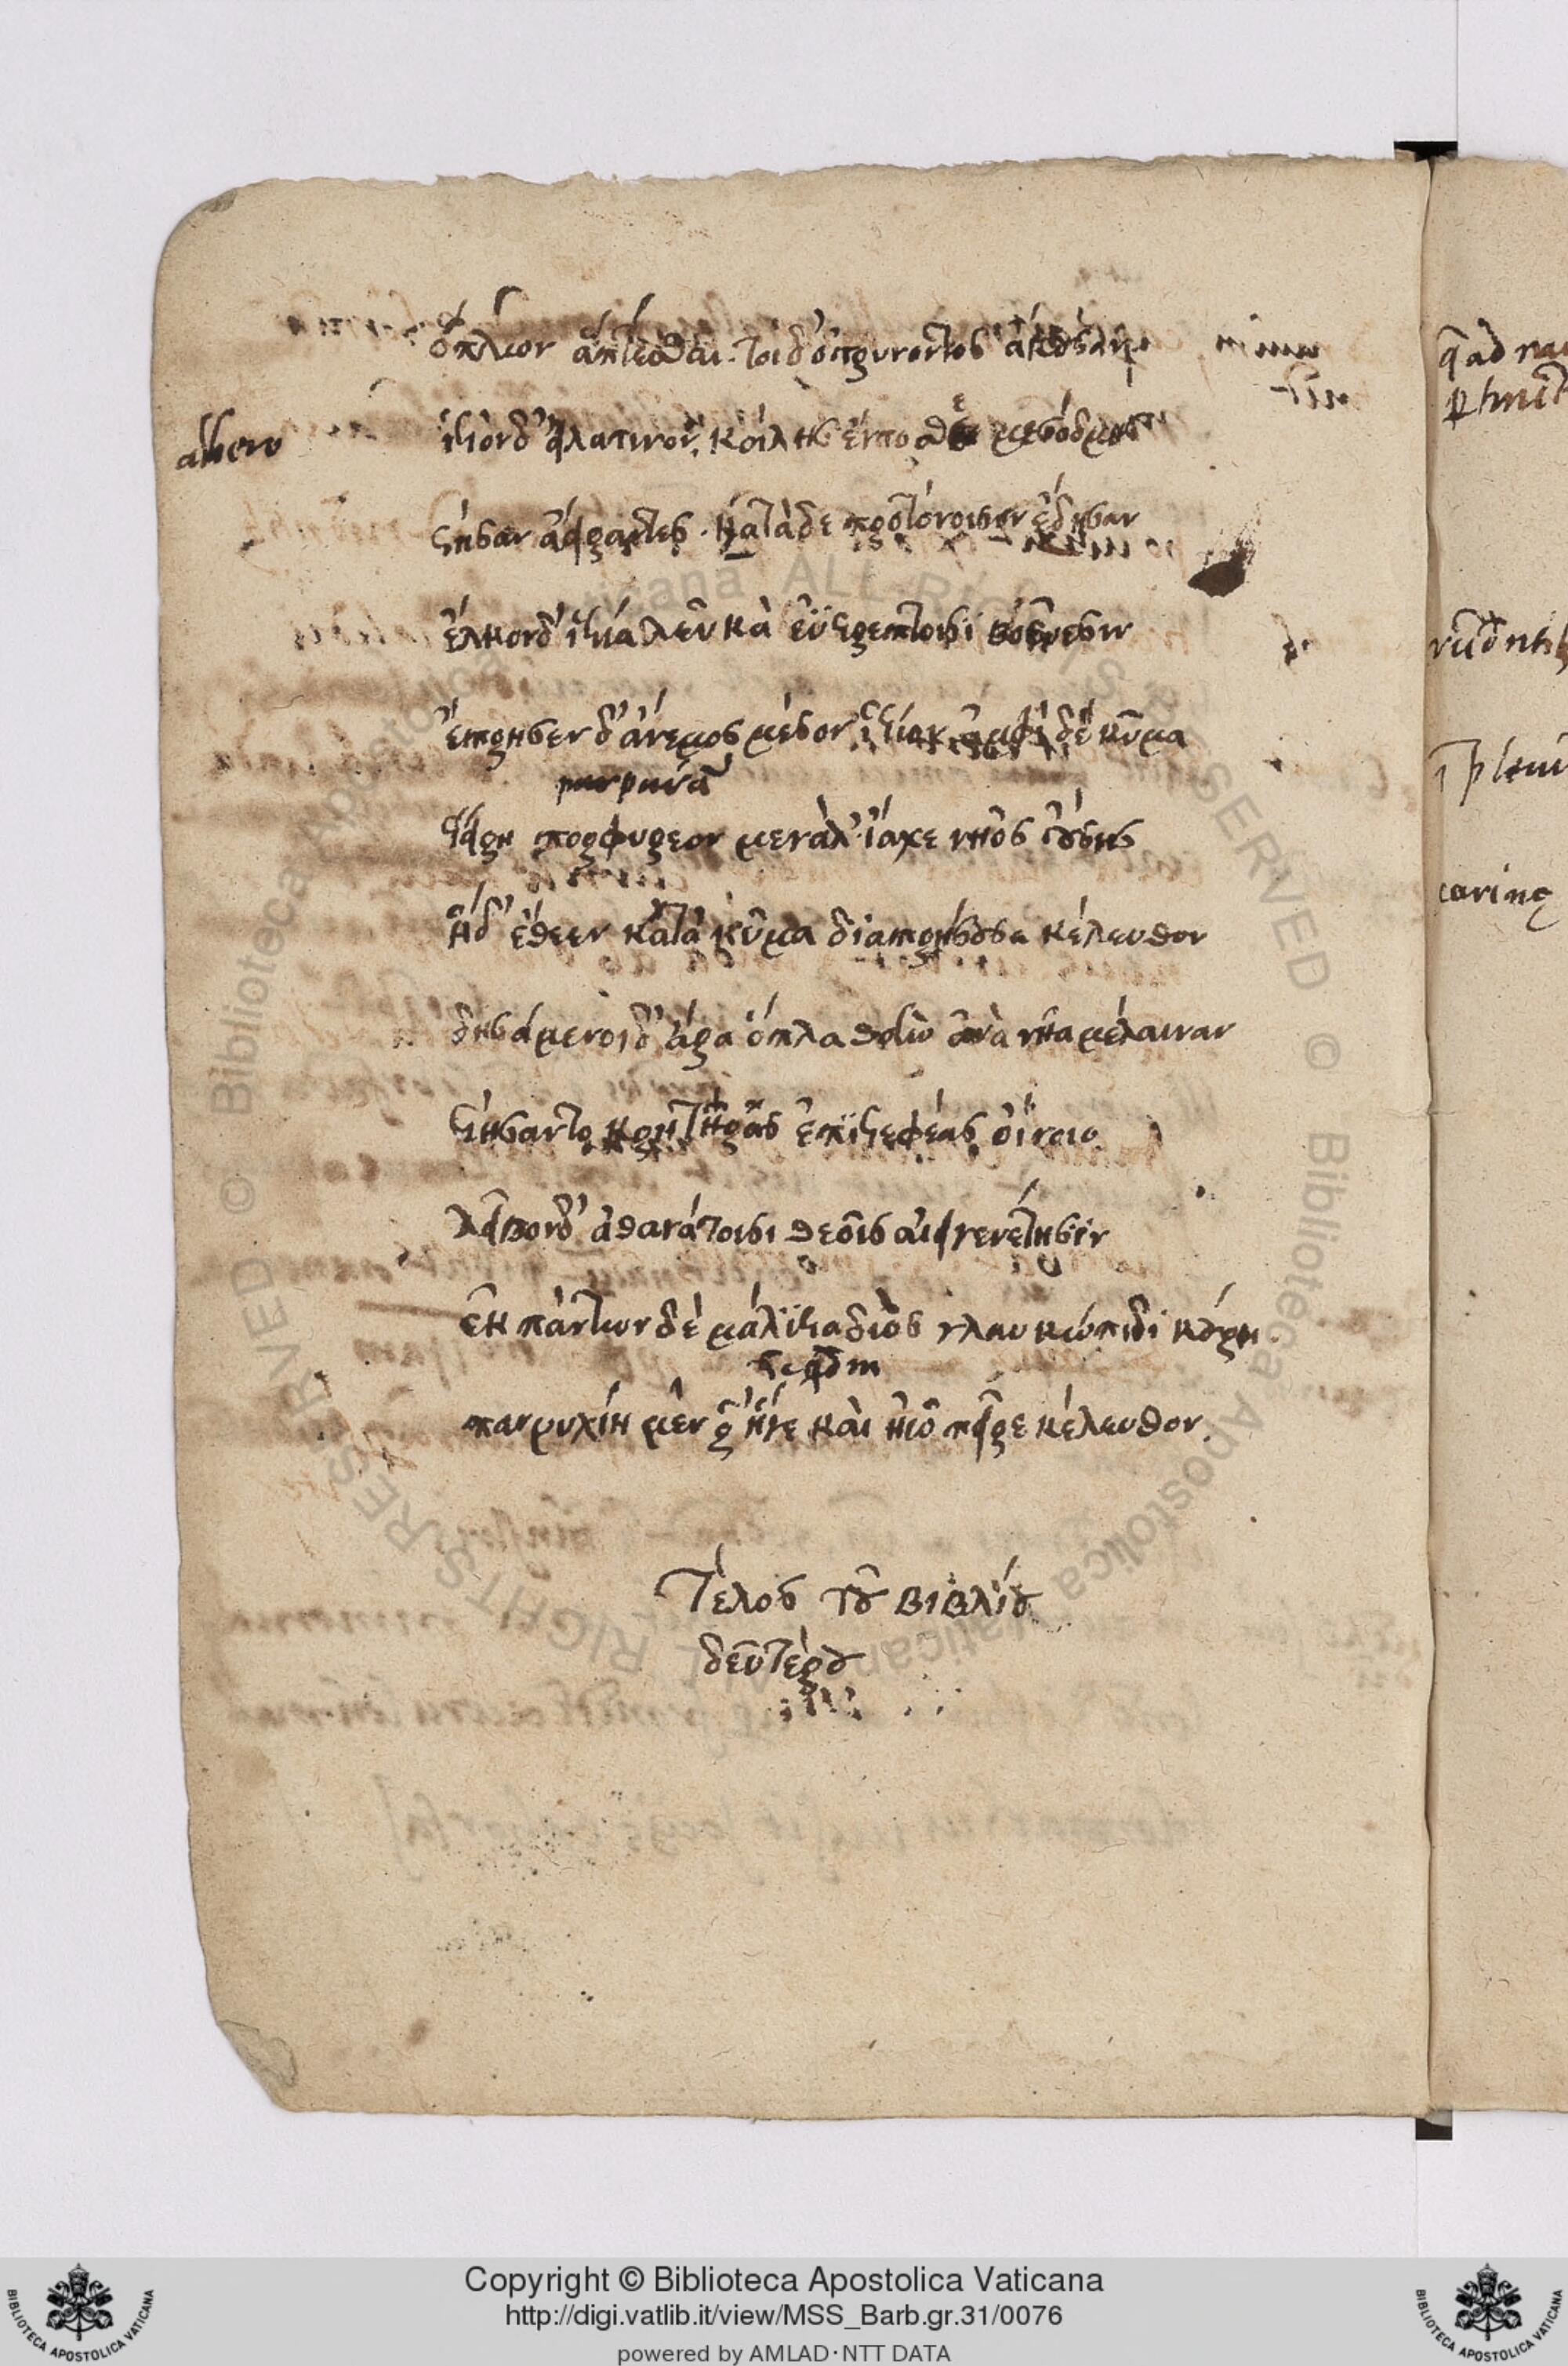 ὅπλων ἅπτεσθαι. τοὶ δ' ὀτρύνοντος ἄκουσαν
abiere
ἱστὸν δ' εἰλάτινον κοίλης ἔντοσθε μεσόδμης
στῆσαν ἀείραντες. κατὰ δὲ προτόνοισιν ἔδησαν
ἕλκον δ' ἱστία λευκὰ ἐϋστρέπτοισι βοεῦσιν
ἔπρησεν δ' ἄνεμος μέσον ἱστίον ἀμφὶ δὲ κῦμα
purpureã
στείρῃ πορφύρεον μεγάλ' ἴαχε νηὸς ἰούσης
ἡ δ' ἔθεεν κατὰ κῦμα διαπρήσσουσα κέλευθον
δησάμενοι δ' ἄρα ὅπλα θοὴν ἀνὰ νῆα μέλαιναν
στήσαντο κρητῆρας ἐπιστεφέας οἴνοιο
λεῖβον δ' ἀθανάτοισι θεοῖς αἰειγενέτῃσιν
ἐκ πάντων δὲ μάλιστα διὸς γλαυκώπιδι κούρῃ.
παννυχίη μέν ῥ' ἥγε καὶ ἠῶ πεῖρε κέλευθον.
Τέλος τοῦ βιβλίου
δευτέρου
carinę
Copyright © Biblioteca Apostolica Vaticana
http://digi.vatlib.it/view/MSS_Barb.gr.31/0076
powered by AMLAD·NTT DATA